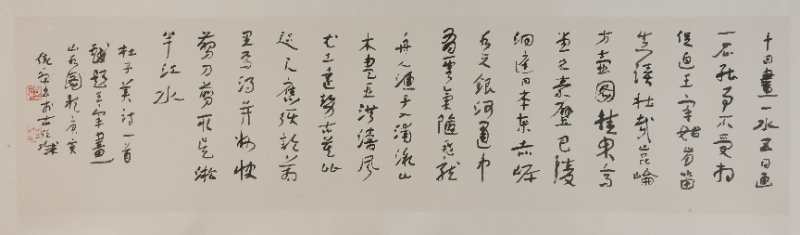 十日畫一水五日畫
一石能事不受相
促迫王宰始肯留
真蹟壯哉崑崙
方壺圖挂君高
堂之素壁巴陵
洞庭日本東赤岸
水与銀河通中
有雲氣隨飛龍
舟人漁子入浦漵山
木盡亞洪濤風
尤工遠勢古莫比
咫尺應須論萬
里焉得并州快
剪刀剪取吴淞
半江水
杜子美詩一首
戲題王宰畫
山水圖歌庚寅